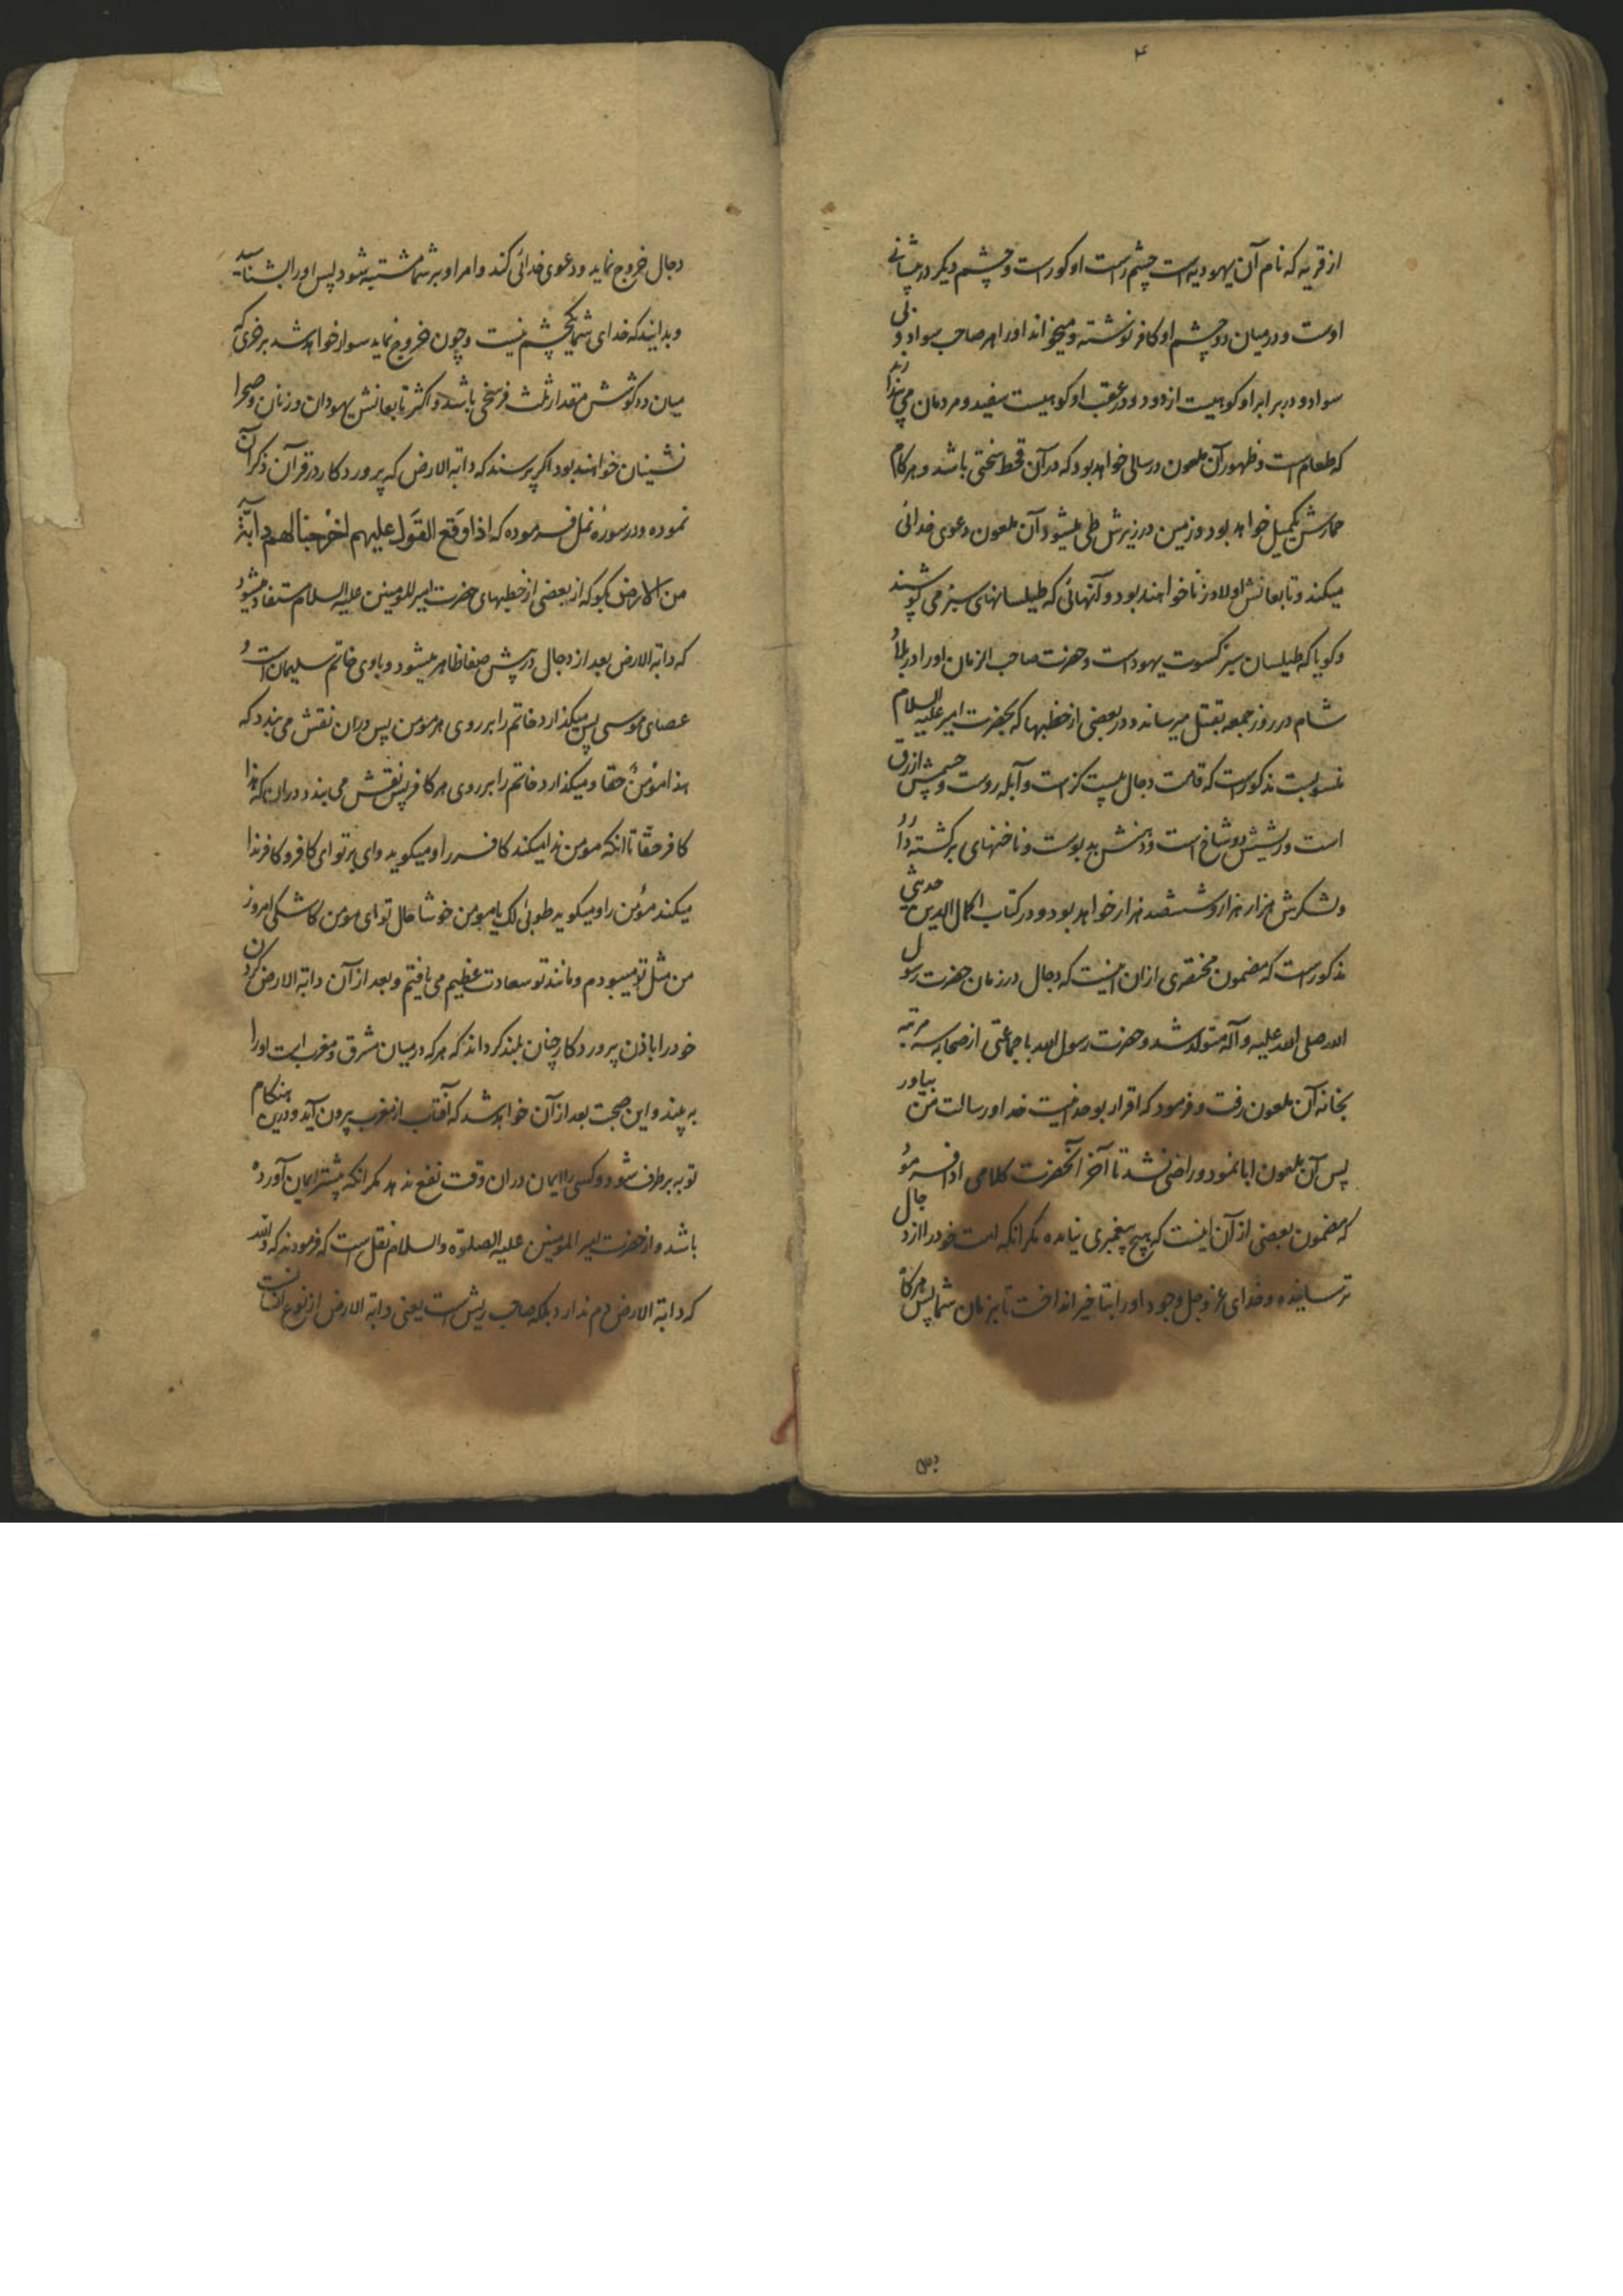 ۴
از قریه که نام آن یهودیه است چشم راست او کور است و چشم دیگر در پیشانی
اوست و در میان دو چشم او کافر نوشته و میخواند او را هر صاحب سواد و بی
سواد و در برابر او کوهیست از دود و در عقب او کوهیست سفید و مردمان می پندارند
که طعام است و ظهور آن ملعون در سالی خواهد بود که در آن قحط سختی باشد و هر کام
حمارش یکمیل خواهد بود و زمین در زیرش طی میشود آن ملعون دعوی خدائی
میکند و تابعانش اولاد زنا خواهند بود و آنهائی که طیلسانهای سبز می پوشند
و کویا که طیلسان سبز کسوت یهود است و حضرت صاحب الزمان او را در بلاد
شام در روز جمعه بقتل میرساند و در بعضی از خطبها که بحضرت امیر علیه السلام
منسوبست مذکور است که قامت دجال بیست کز است و آبله روست و چشمش ازرق
است و ریشش دو شاخ است و دهنش بدبوست و ناخنهای برکشته دارد
و لشکرش هزار هزار و ششصد هزار خواهد بود و در کتاب اکمال الدین حدیثی
مذکور است که مضمون مختصری از ان اینست که دجال در زمان حضرت رسول
الله صلی الله علیه و آله متولد شد و حضرت رسول الله با جماعتی از صحابه سه مرتبه
بخانه آن ملعون رفت و فرمود که اقرار بوحدانیت خدا و رسالت من بیاور
پس آن ملعون ابا نمود و راضی نشد تا آخر آنحضرت کلامی ادا فرمود
که مضمون بعضی از آن اینست که هیچ پیغمبری نیامده مکر انکه امت خود را از دجال
ترسانیده و خدای عز و جل وجود او را بتاخیر انداخت تا بزمان شما پس هرکاه
دجال
دجال خروج نماید و دعوی خدائی کند و امر او بر شما مشتبه شود پس او را بشناسید
و بدانید که خدای شما یکچشم نیست و چون خروج نماید سوار خواهد شد بر خری که
میان دو کوشش مقدار ثلث فرسخی باشد و اکثر تابعانش یهودان و زنان و صحرا
نشینان خواهند بود اکر پرسند که دابة الارض که پروردکار در قرآن ذکر آن
نموده و در سورهٔ نمل فرموده که اذا وقع القول علیهم اخرجنا لهم دابّة
من الارض بکو که از بعضی از خطبهای حضرت امیر المومنین علیه السلام مستفاد میشود
که دابة الارض بعد از دجال در پیش صفا ظاهر میشود و باوی خاتم سلیمان است و
عصای موسی پس میکذارد خاتم را بر روی هر مومن پس دران نقش می بندد که
هذا مؤمنٌ حقا و میکذارد خاتم را بر روی هر کافر پس نقش می بندد دران که هذا
کافر حقّا تا انکه مومن ندا میکند کافر را و میکوید وای بر تو ای کافر و کافر ندا
میکند مؤمن را و میکوید طوبی لک یا مومن خوشا حال تو ای مومن کاشکی امروز
من مثل تو میبودم و مانند تو سعادت عظیم می یافتم و بعد از آن دابة الارض کردن
خود را باذن پروردکار چنان بلند کرداند که هر که در میان مشرق و مغرب است او را
به بیند و این صحبت بعد از آن خواهد شد که آفتاب از مغرب بیرون آید و درین هنکام
توبه برطرف شود و کسی را ایمان دران وقت نفع ندهد مکر انکه پیشتر ایمان آورده
باشد و از حضرت امیر المومنین علیه الصلوة والسلام نقل است که فرمودند که والله
که دابة الارض دم ندارد بلکه صاحب ریش است یعنی دابة الارض از نوع انسانست